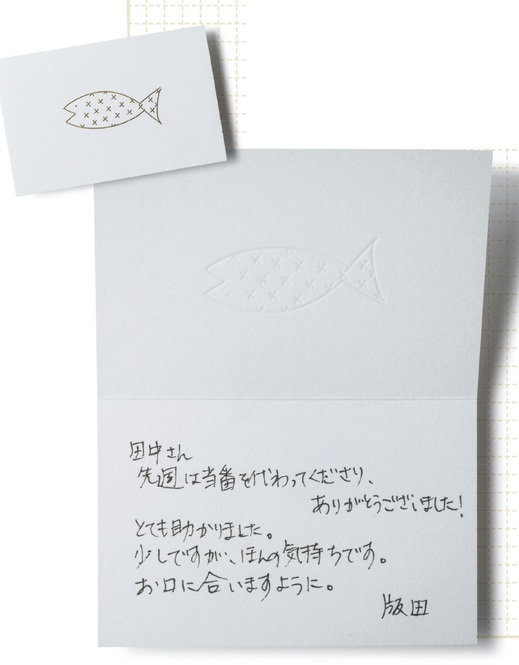 田中さん
先週は当番を代わってくださり、
ありがとうございました!
とても助かりました。
少しですが、ほんの気持ちです。
お口に合いますように。
版田